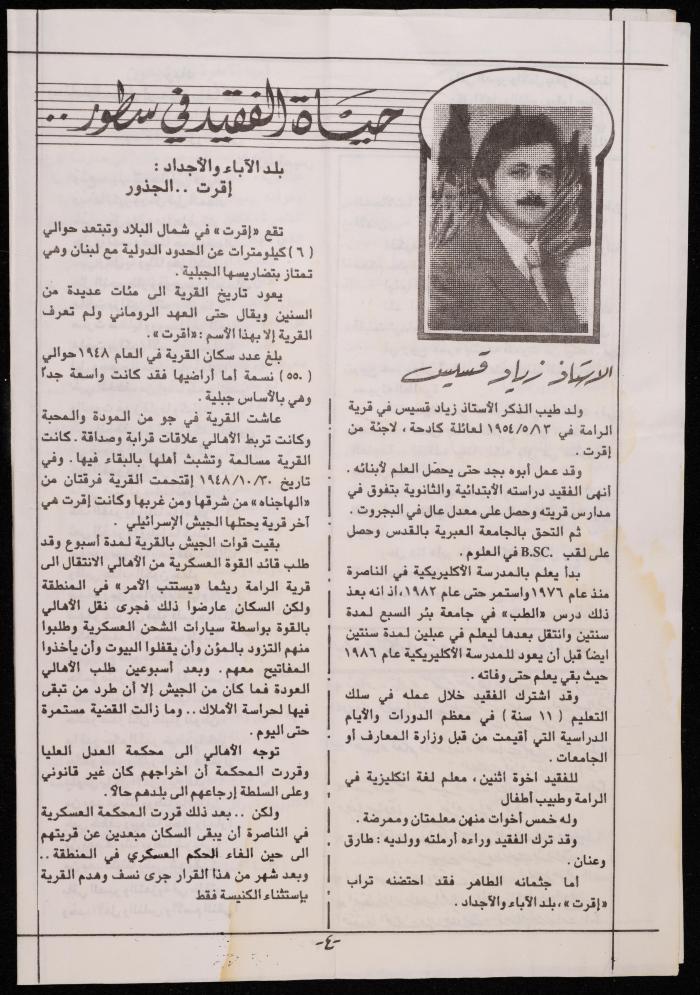 حياة الفقيد في سطور ..
الاستاذ زياد قسيس
ولد طيب الذكر الأستاذ زياد قسيس في قرية
الرامة في ١٩٥٤/٥/١٣ لعائلة كادحة ، لاجئة من
إقرت .
وقد عمل أبوه بجد حتى يحصّل العلم لأبنائه .
أنهى الفقيد دراسته الأبتدائية والثانوية بتفوق في
مدارس قريته وحصل على معدل عال في البجروت .
ثم التحق بالجامعة العبرية بالقدس وحصل
على لقب B.SC. في العلوم .
بدأ يعلم بالمدرسة الأكليريكية في الناصرة
منذ عام ١٩٧٦ واستمر حتى عام ١٩٨٢، اذ انه بعد
ذلك درس «الطب» في جامعة بئر السبع لمدة
سنتين وانتقل بعدها ليعلم في عبلين لمدة سنتين
ايضاً قبل أن يعود للمدرسة الأكليريكية عام ١٩٨٦
حيث بقي يعلم حتى وفاته .
وقد اشترك الفقيد خلال عمله في سلك
التعليم ( ١١ سنة ) في معظم الدورات والأيام
الدراسية التي أقيمت من قبل وزارة المعارف أو
الجامعات .
للفقيد اخوة اثنين ، معلم لغة انكليزية في
الرامة وطبيب أطفال
وله خمس أخوات منهن معلمتان وممرضة .
وقد ترك الفقيد وراءه أرملته وولديه : طارق
وعنان .
أما جثمانه الطاهر فقد احتضنه تراب
«إقرت» ، بلد الآباء والأجداد .
بلد الآباء والأجداد :
إقرت .. الجذور
تقع «إقرت» في شمال البلاد وتبتعد حوالي
(٦) كيلومترات عن الحدود الدولية مع لبنان وهي
تمتاز بتضاريسها الجبلية .
يعود تاريخ القرية الى مئات عديدة من
السنين ويقال حتى العهد الروماني ولم تعرف
القرية إلا بهذا الأسم : «اقرت» .
بلغ عدد سكان القرية في العام ١٩٤٨ حوالي
( ٥٥٠) نسمة أما أراضيها فقد كانت واسعة جداً
وهي بالأساس جبلية .
عاشت القرية في جو من المودة والمحبة
وكانت تربط الأهالي علاقات قرابة وصداقة . كانت
القرية مسالمة وتشبث أهلها بالبقاء فيها . وفي
تاريخ ١٩٤٨/١٠/٣٠ إقتحمت القرية فرقتان من
«الهاجناه» من شرقها ومن غربها وكانت إقرت هي
آخر قرية يحتلها الجيش الإسرائيلي .
بقيت قوات الجيش بالقرية لمدة أسبوع وقد
طلب قائد القوة العسكرية من الأهالي الانتقال الى
قرية الرامة ريثما «يستتب الأمر» في المنطقة
ولكن السكان عارضوا ذلك فجرى نقل الأهالي
بالقوة بواسطة سيارات الشحن العسكرية وطلبوا
منهم التزود بالمؤن وأن يقفلوا البيوت وأن يأخذوا
المفاتيح معهم . وبعد أسبوعين طلب الأهالي
العودة فما كان من الجيش إلا أن طرد من تبقى
فيها لحراسة الأملاك .. وما زالت القضية مستمرة
حتى اليوم .
توجه الأهالي الى محكمة العدل العليا
وقررت المحكمة أن اخراجهم كان غير قانوني
وعلى السلطة إرجاعهم الى بلدهم حالاً .
ولكن .. بعد ذلك قررت المحكمة العسكرية
في الناصرة أن يبقى السكان مبعدين عن قريتهم
الى حين الغاء الحكم العسكري في المنطقة ..
وبعد شهر من هذا القرار جرى نسف وهدم القرية
بإستثناء الكنيسة فقط
-٤-